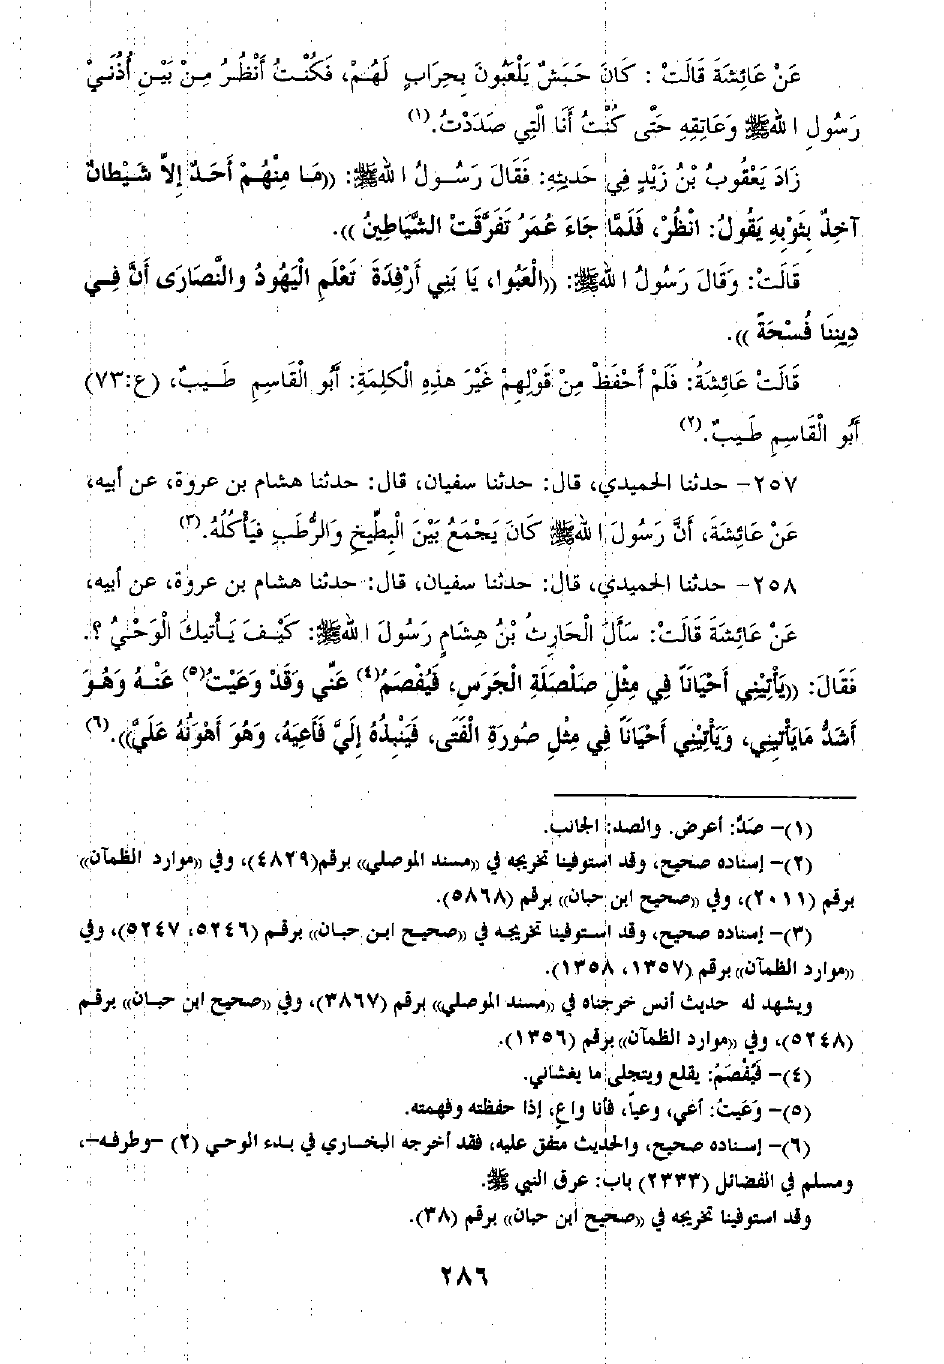 عَنْ عَائِشَةَ قَالَتْ : كَانَ حَبَشٌ يَلْعَبُونَ بِحِرَابٍ لَهُمْ، فَكُنْتُ أَنْظُرُ مِنْ بَيْنِ أُذُنَيْ
رَسُولِ اللهِ ﷺ وَعَاتِقِهِ حَتَّى كُنْتُ أَنَا الَّتِي صَدَدْتُ.(١)
زَادَ يَعْقُوبُ بْنُ زَيْدٍ فِي حَدِيثِهِ: فَقَالَ رَسُولُ اللهِ ﷺ: ((مَا مِنْهُمْ أَحَدٌ إِلاَّ شَيْطَانٌ
آخِذٌ بِثَوْبِهِ يَقُولُ: انْظُرْ، فَلَمَّا جَاءَ عُمَرُ تَفَرَّقَتْ الشَّيَاطِينُ )).
قَالَتْ: وَقَالَ رَسُولُ اللهِ ﷺ: ((الْعَبُوا، يَا بَنِي أَرْفِدَةَ تَعْلَمِ الْيَهُودُ والنَّصَارَى أَنَّ فِي
دِينِنَا فُسْحَةً )).
قَالَتْ عَائِشَةُ: فَلَمْ أَحْفَظْ مِنْ قَوْلِهِمْ غَيْرَ هذِهِ الْكَلِمَةِ: أَبُو الْقَاسِمِ طَيِبٌ، (ع:٧٣)
أَبُو الْقَاسِمِ طَيِبٌ.(٢)
٢٥٧- حدثنا الحميدي، قال: حدثنا سفيان، قال: حدثنا هشام بن عروة، عن أبيه،
عَنْ عَائِشَةَ، أَنَّ رَسُولَ اللهِ ﷺ كَانَ يَجْمَعُ بَيْنَ الْبِطِّيخِ وَالرُّطَبِ فَيَأْكُلُهُ.(٣)
٢٥٨- حدثنا الحميدي، قال: حدثنا سفيان، قال: حدثنا هشام بن عروة، عن أبيه،
عَنْ عَائِشَةَ قَالَتْ: سَأَلَ الْحَارِثُ بْنُ هِشَامٍ رَسُولَ اللهِ ﷺ: كَيْفَ يَأْتيكَ الْوَحْيُ ؟.
فَقَالَ: ((يَأْتِيْنِي أَحْيَانَاً فِي مِثْلِ صَلْصَلَةِ الْجَرَسِ، فَيُفْصَمُ(٤) عَنِّي وَقَدْ وَعَيْتُ(٥) عَنْهُ وَهُوَ
أَشَدُّ مَايَأْتِينِي، وَيَأْتِيْنِي أَحْيَانَاً فِي مِثْلِ صُورَةِ الْفَتَى، فَيَنْبِذُهُ إِلَيَّ فَأَعِيَهُ، وَهُوَ أَهْوَنُهُ عَلَيَّ)).(٦)
(١)- صَدَّ: أعرض. والصد: الجانب.
(٢)- إسناده صحيح، وقد استوفينا تخريجه في ((مسند الموصلي)) برقم(٤٨٢٩)، وفي ((موارد الظمآن))
برقم (٢٠١١)، وفي ((صحيح ابن حبان)) برقم (٥٨٦٨).
(٣)- إسناده صحيح، وقد استوفينا تخريجه في ((صحيح ابن حبان)) برقم (٥٢٤٦، ٥٢٤٧)، وفي
((موارد الظمآن)) برقم (١٣٥٧، ١٣٥٨).
ويشهد له حديث أنس خرجناه في ((مسند الموصلي)) برقم (٣٨٦٧)، وفي ((صحيح ابن حبان)) برقم
(٥٢٤٨)، وفي ((موارد الظمآن)) برقم (١٣٥٦).
(٤)- فَيُفْصَمُ: يقلع ويتجلى ما يغشاني.
(٥)- وَعَيتُ: أعي، وعياً، فأنا واعٍ، إذا حفظته وفهمته.
(٦)- إسناده صحيح، والحديث متفق عليه، فقد أخرجه البخاري في بدء الوحي (٢) -وطرفه-،
ومسلم في الفضائل (٢٣٣٣) باب: عرق النبي ﷺ.
وقد استوفينا تخريجه في ((صحيح ابن حبان)) برقم (٣٨).
٢٨٦